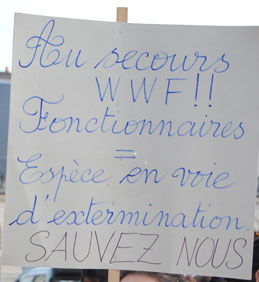 Au secours
WWF!!
Fonctionnaires
=
Espèce en voie
d'extermination.
SAUVEZ NOUS